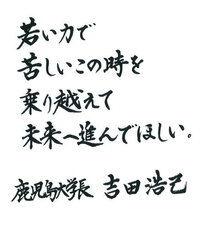 若い力で
苦しいこの時を
乗り越えて
未来へ進んでほしい。
鹿児島大学長 吉田浩己